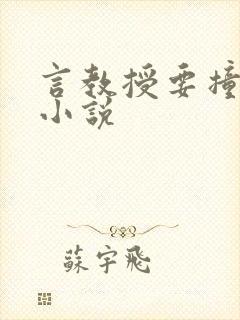 言教授要撞
小説
蘇宇飛